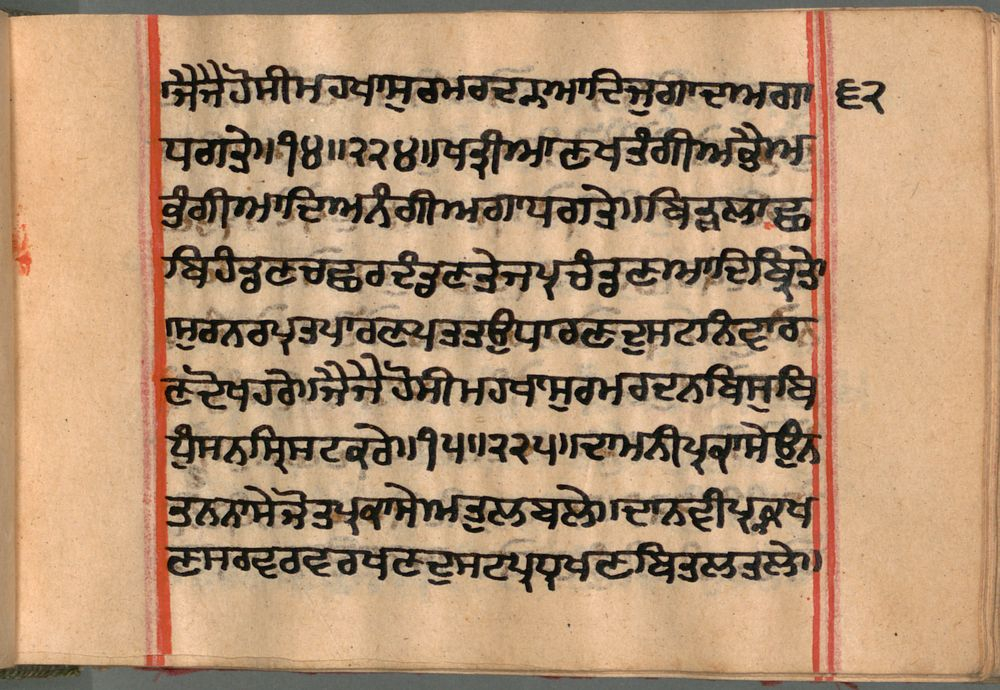 ਜੈਜੈਹੋਸੀਮਹਖਾਸੁਰਮਰਦਨਆਦਿਜੁਗਾਦਅਗਾ ੬੨
ਪਗਤੇ॥੧੪॥੨੨੪॥ਖੜੀਆਣਖਤੰਗੀਅਭੈਅ
ਭੰਗੀਆਦਿਅਨੰਗੀਅਗਾਪਗਤੇ॥ਬਿੜਲਾਛ
ਬਿਹੰਡਣਚਛਰਦੰਡਣਤੇਜਪ੍ਰਚੰਡਣਆਦਿਬ੍ਰਿਤੇ
ਸੁਰਨਰਪ੍ਰਤਪਾਰਣਪਤਤਉਧਾਰਣਦੁਸਟਨਿਵਾਰ
ਣਦੋਖਹਰੇ॥ਜੈਜੈਹੋਸੀਮਹਖਾਸੁਰਮਰਦਨਬਿਸੁਬਿ
ਧੁੰਸਨਸ੍ਰਿਸਟਕਰੇ॥੧੫॥੨੨੫॥ਦਾਮਨੀਪ੍ਰਕਾਸੇਉਨ
ਤਨਨਾਸੇਜੋਤਪ੍ਰਕਾਸੇਅਤੁਲਬਲੇ॥ਦਾਨਵੀਪ੍ਰਕਖ
ਣਸਰਵਰਵਰਖਣਦੁਸਟਪ੍ਰਧਖਣਬਿਤਲਤਲੇ॥